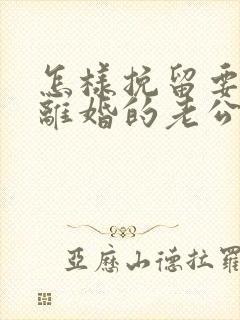 怎樣挽留要
離婚的老公
亞歷山德拉羅